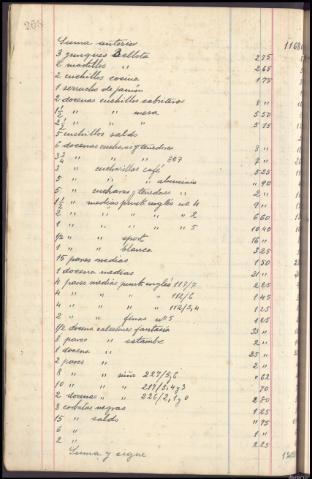 268
Suma anterior 1168
3 yunques Bellota 2 25
2 martillos " 2 65
2 cuchillos cocina 1 75
1 serrucho de jamón
2 docenas cuchillos cabritero 8 "
1½ " " mesa 5 50
2½ " " " 5 75
5 cuchillos saldo
6 docenas cucharas y tenedores 3 "
3¾ " " " 307 7 "
3 " cucharillas café 5 25
5 " " " aluminio " 90
5 " cucharas y tenedores " 2 "
1½ " medias punto inglés nº 4 9 "
2 " " " " " 2 6 60
1 " " " " " 5 10 40
1/2 " " sport 16 "
1 " " blanca 3 25
15 pares medias 1 50
1 docena medias 21 "
4 pares medias punto inglés 117/7 2 25
4 " " " " 118/6 1 45
4 " " " " 116/3,4 1 25
2 " " finas nº 5 1 25
1/2 docena calcetines fantasía 33 "
3 pares " estambre 2 "
1 docena " 25 "
2 pares " 2 "
8 " " niño 227/5,6 " 62
10 " " " 219/3,4 y 3 70
2 docenas " " 226/2,1 y 0 2 70
3 corbatas negras 1 25
15 " saldo " 75
6 " 1 "
2 " 2 25
Suma y sigue